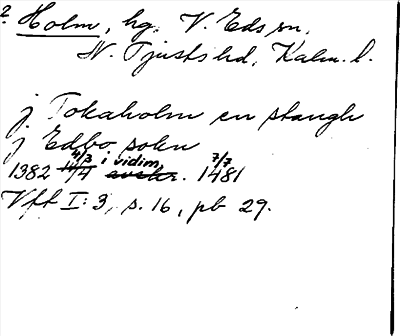 2 Holm, hg. V. Eds sn,
N. Tjusts hd, Kalm. l.
j Tokaholm en stangh
j Edbo sokn
1382 4/3 i vidim. 1481 7/7
Vff I:3, s. 16, pb 29.